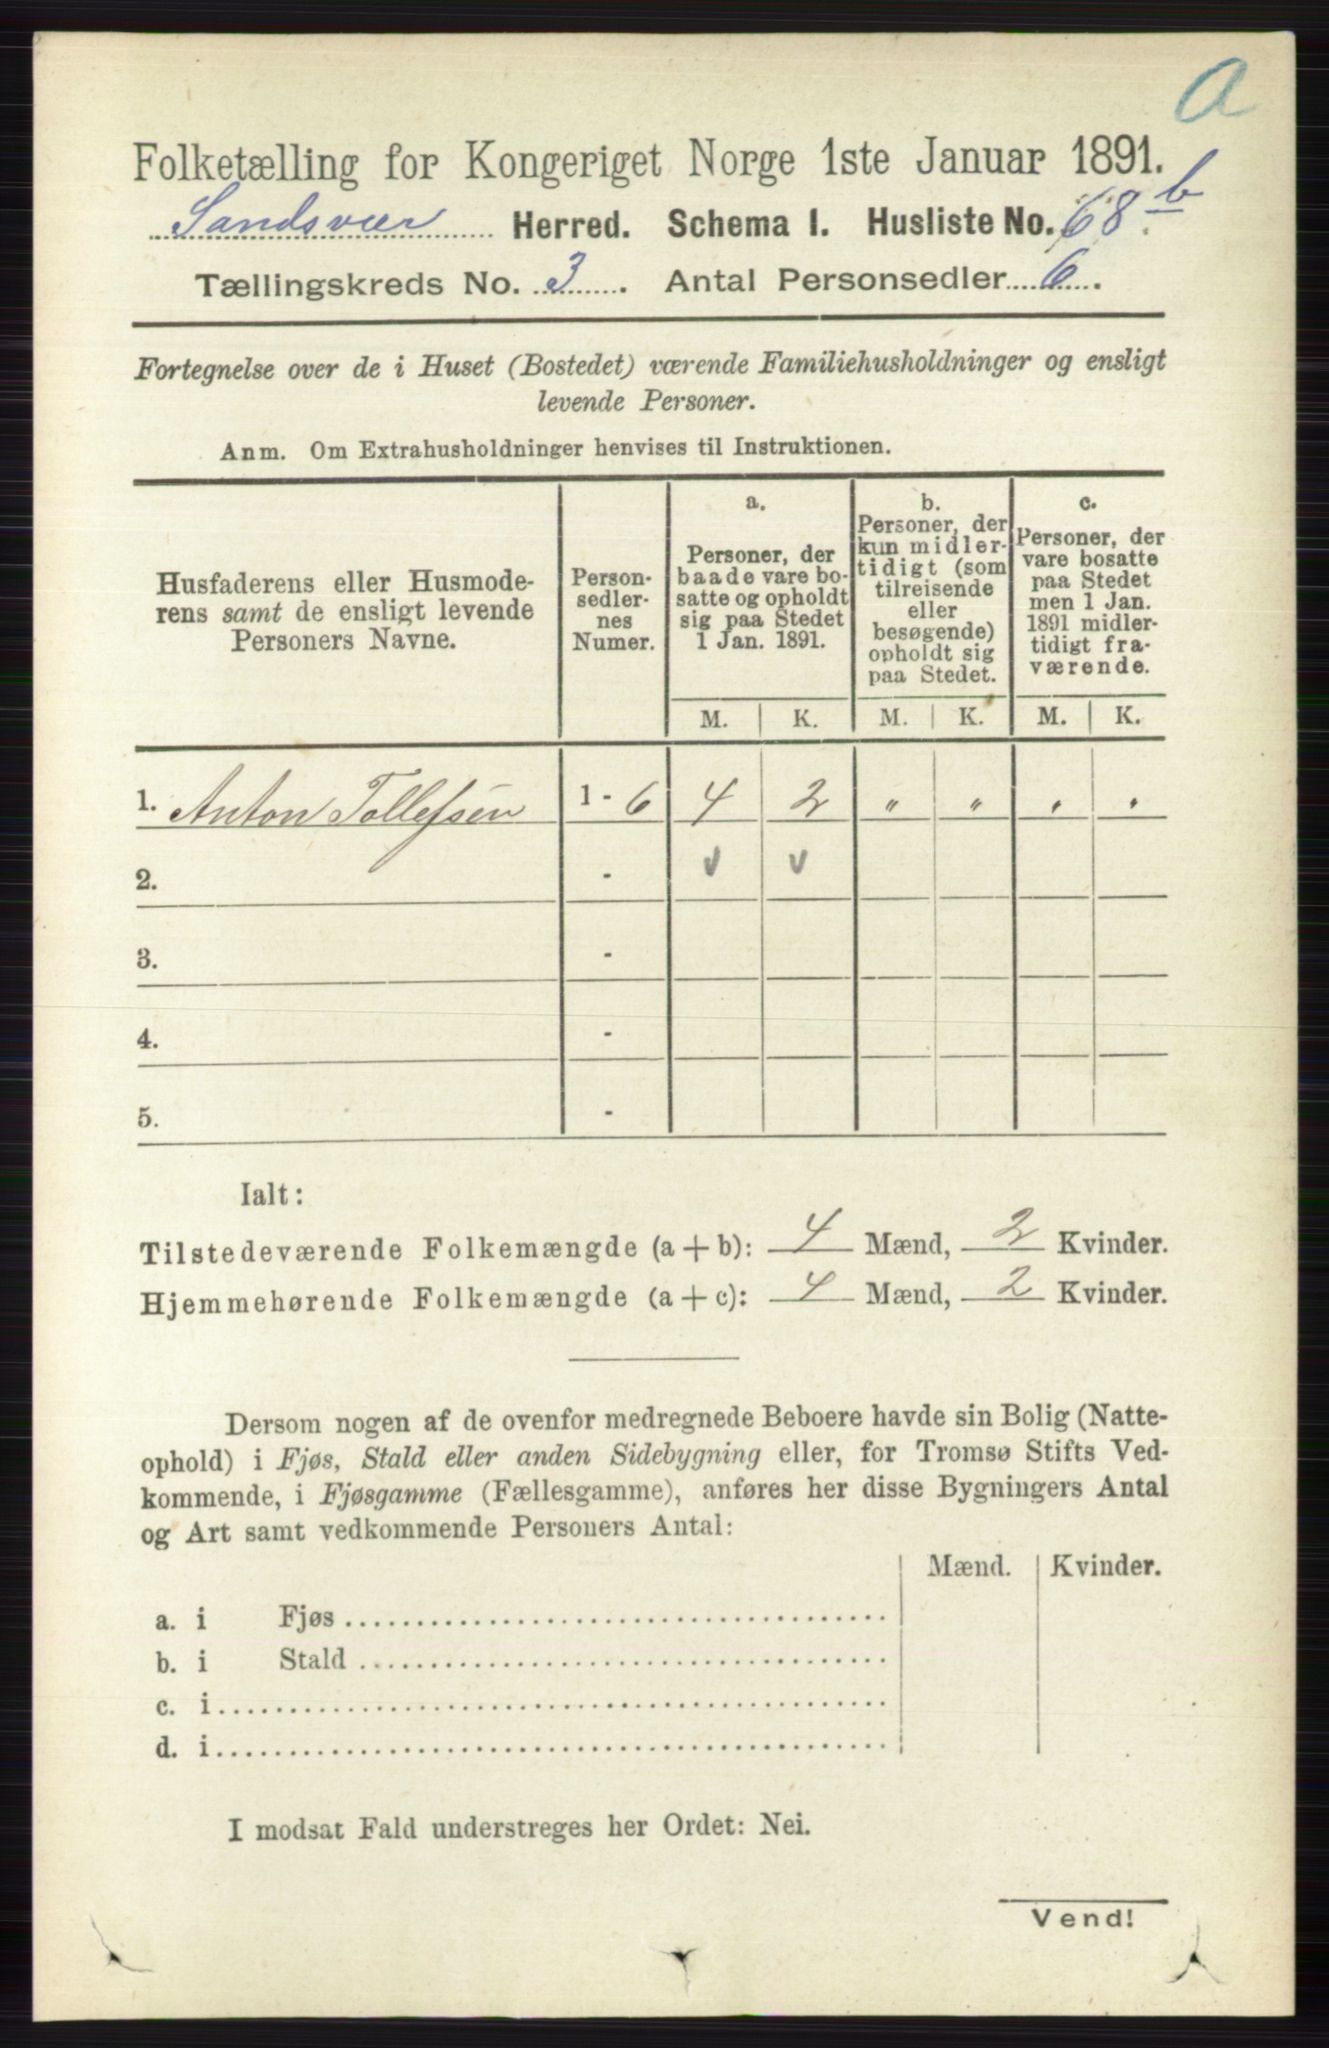 a
Folketælling for Kongeriget Norge 1ste Januar 1891.
Sandsvær Herred. Schema I. Husliste No. 68 b
Tællingskreds No. 3. Antal Personsedler 6.
Fortegnelse over de i Huset (Bostedet) værende Familiehusholdninger og ensligt
levende Personer.
Anm. Om Extrahusholdninger henvises til Instruktionen.
Husfaderens eller Husmode-
rens samt de ensligt levende
Personers Navne.
Person-
sedler-
nes
Numer.
a.
Personer, der
baade vare bo-
satte og opholdt
sig paa Stedet
1 Jan. 1891.
b.
Personer, der
kun midler-
tidigt (som
tilreisende
eller
besøgende)
opholdt sig
paa Stedet.
c.
Personer, der
vare bosatte
paa Stedet
men 1 Jan.
1891 midler-
tidigt fra-
værende.
M. K. M. K. M. K.
1. Anton Tollefsen 1 - 6 4 2 " " " "
2. - v v
3. -
4. -
5. -
Ialt:
Tilstedeværende Folkemængde (a + b): 4 Mænd, 2 Kvinder.
Hjemmehørende Folkemængde (a + c): 4 Mænd, 2 Kvinder.
Dersom nogen af de ovenfor medregnede Beboere havde sin Bolig (Natte-
ophold) i Fjøs, Stald eller anden Sidebygning eller, for Tromsø Stifts Ved-
kommende, i Fjøsgamme (Fællesgamme), anføres her disse Bygningers Antal
og Art samt vedkommende Personers Antal:
Mænd. Kvinder.
a. i Fjøs
b. i Stald
c. i
d. i
I modsat Fald understreges her Ordet: Nei.
Vend!